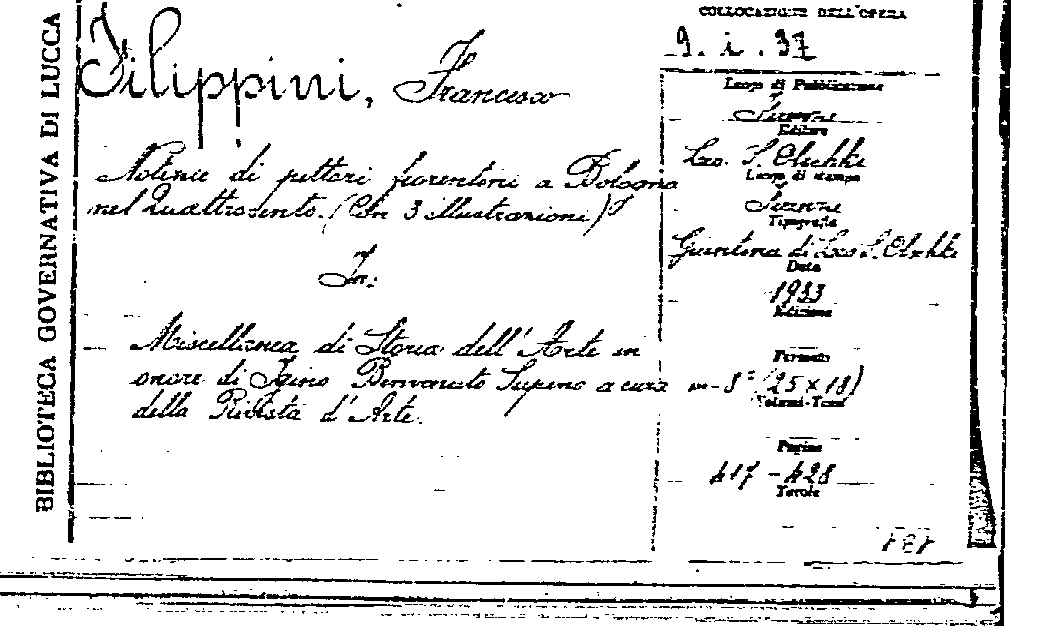 BIBLIOTECA GOVERNATIVA DI LUCCA
Filippini, Francesco
Notizie di pittori fiorentini a Bologna
nel Quattrocento. (Con 3 illustrazioni)
In:
Miscellanea di Storia dell'Arte in
onore di Igino Benvenuto Supino a cura
della Rivista d'Arte.
COLLOCAZIONE DELL'OPERA
9. i. 37
Luogo di Pubblicazione
Firenze
Editore
Leo. S. Olschki
Luogo di stampa
Firenze
Tipografia
Giuntina di Leo S. Olschki
Data
1933
Edizione
Formato
in-8° (25x18)
Volumi-Tomi
Pagine
417-428
Tavole